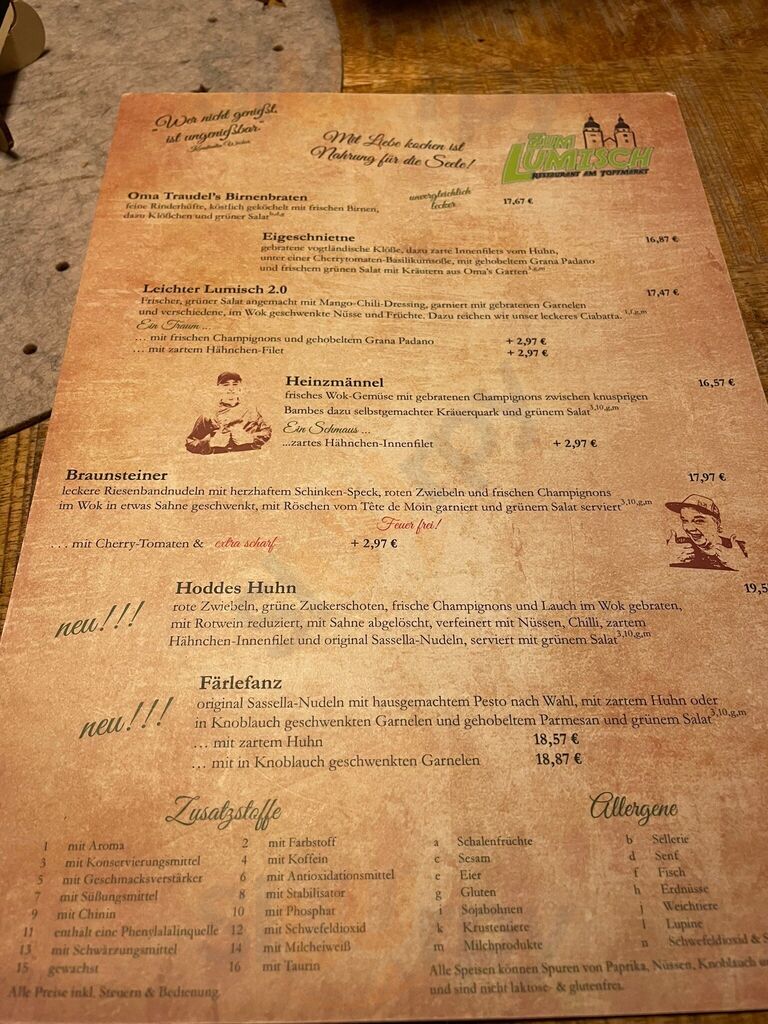 "Wer nicht genießt,
ist ungenießbar"
Konstantin Wecker
Mit Liebe kochen ist
Nahrung für die Seele!
ZUM
LUMISCH
RESTAURANT AM TOPFMARKT
Oma Traudel's Birnenbraten unvergleichlich lecker 17,67 €
feine Rinderhüfte, köstlich geköchelt mit frischen Birnen,
dazu Klößchen und grüner Salat
Eigeschnietne 16,87 €
gebratene vogtländische Klöße, dazu zarte Innenfilets vom Huhn,
unter einer Cherrytomaten-Basilikumsoße, mit gehobeltem Grana Padano
und frischem grünen Salat mit Kräutern aus Oma's Garten
Leichter Lumisch 2.0 17,47 €
Frischer, grüner Salat angemacht mit Mango-Chili-Dressing, garniert mit gebratenen Garnelen
und verschiedene, im Wok geschwenkte Nüsse und Früchte. Dazu reichen wir unser leckeres Ciabatta.
Ein Traum ...
... mit frischen Champignons und gehobeltem Grana Padano + 2,97 €
... mit zartem Hähnchen-Filet + 2,97 €
Heinzmännel 16,57 €
frisches Wok-Gemüse mit gebratenen Champignons zwischen knusprigen
Bambes dazu selbstgemachter Kräuerquark und grünem Salat3,10,g,m
Ein Schmaus ...
...zartes Hähnchen-Innenfilet + 2,97 €
Braunsteiner 17,97 €
leckere Riesenbandnudeln mit herzhaftem Schinken-Speck, roten Zwiebeln und frischen Champignons
im Wok in etwas Sahne geschwenkt, mit Röschen vom Tête de Moin garniert und grünem Salat serviert3,10,g,m
Feuer frei!
. . . mit Cherry-Tomaten & extra scharf + 2,97 €
Hoddes Huhn 19,5
neu!!!
rote Zwiebeln, grüne Zuckerschoten, frische Champignons und Lauch im Wok gebraten,
mit Rotwein reduziert, mit Sahne abgelöscht, verfeinert mit Nüssen, Chilli, zartem
Hähnchen-Innenfilet und original Sassella-Nudeln, serviert mit grünem Salat3,10,g,m
Färlefanz
neu!!!
original Sassella-Nudeln mit hausgemachtem Pesto nach Wahl, mit zartem Huhn oder
in Knoblauch geschwenkten Garnelen und gehobeltem Parmesan und grünem Salat3,10,g,m
... mit zartem Huhn 18,57 €
... mit in Knoblauch geschwenkten Garnelen 18,87 €
Zusatzstoffe
1 mit Aroma 2 mit Farbstoff
3 mit Konservierungsmittel 4 mit Koffein
5 mit Geschmacksverstärker 6 mit Antioxidationsmittel
7 mit Süßungsmittel 8 mit Stabilisator
9 mit Chinin 10 mit Phosphat
11 enthält eine Phenylalalinquelle 12 mit Schwefeldioxid
13 mit Schwärzungsmittel 14 mit Milcheiweiß
15 gewachst 16 mit Taurin
Alle Preise inkl. Steuern & Bedienung.
Allergene
a Schalenfrüchte b Sellerie
c Sesam d Senf
e Eier f Fisch
g Gluten h Erdnüsse
i Sojabohnen j Weichtiere
k Krustentiere l Lupine
m Milchprodukte n Schwefeldioxid & S
Alle Speisen können Spuren von Paprika, Nüssen, Knoblauch u
und sind nicht laktose- & glutenfrei.